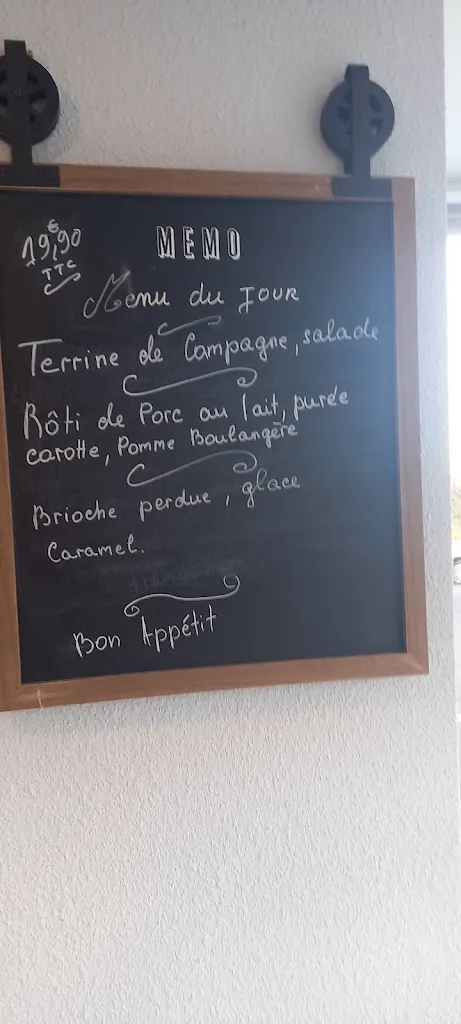 19,90 €
TTC
MEMO
Menu du JOUR
Terrine de Campagne, salade
Rôti de Porc au lait, purée
carotte, Pomme Boulangère
Brioche perdue, glace
Caramel.
Bon Appétit